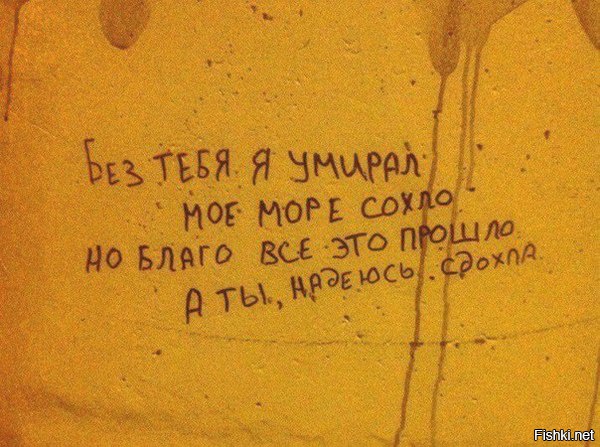 Без тебя я умирал
мое море сохло
но благо все это прошло
а ты, надеюсь, сдохла
Fishki.net